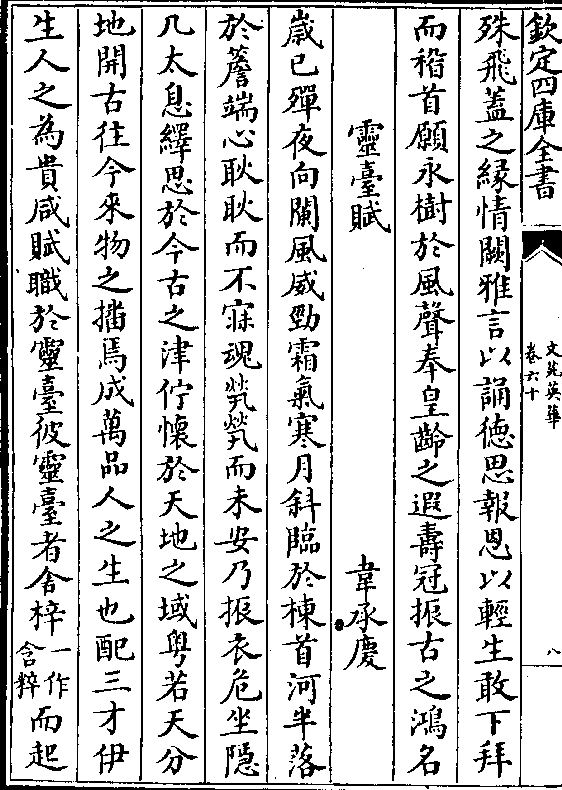 欽定四庫全書
文苑英華
卷六十
八
殊飛蓋之緣情闕雅言以誦德思報恩以輕生敢下拜
而稽首願永樹於風聲奉皇齡之遐壽冠振古之鴻名
靈臺賦
韋承慶
歳已殫夜向闌風威勁霜氣寒月斜臨於棟首河半落
於簷端心耿耿而不寐魂煢煢而未安乃振衣危坐隱
几太息繹思於今古之津佇懷於天地之域粤若天分
地開古往今來物之播焉成萬品人之生也配三才伊
生人之為貴咸賦職於靈臺彼靈臺者舍梓一作含粹而起